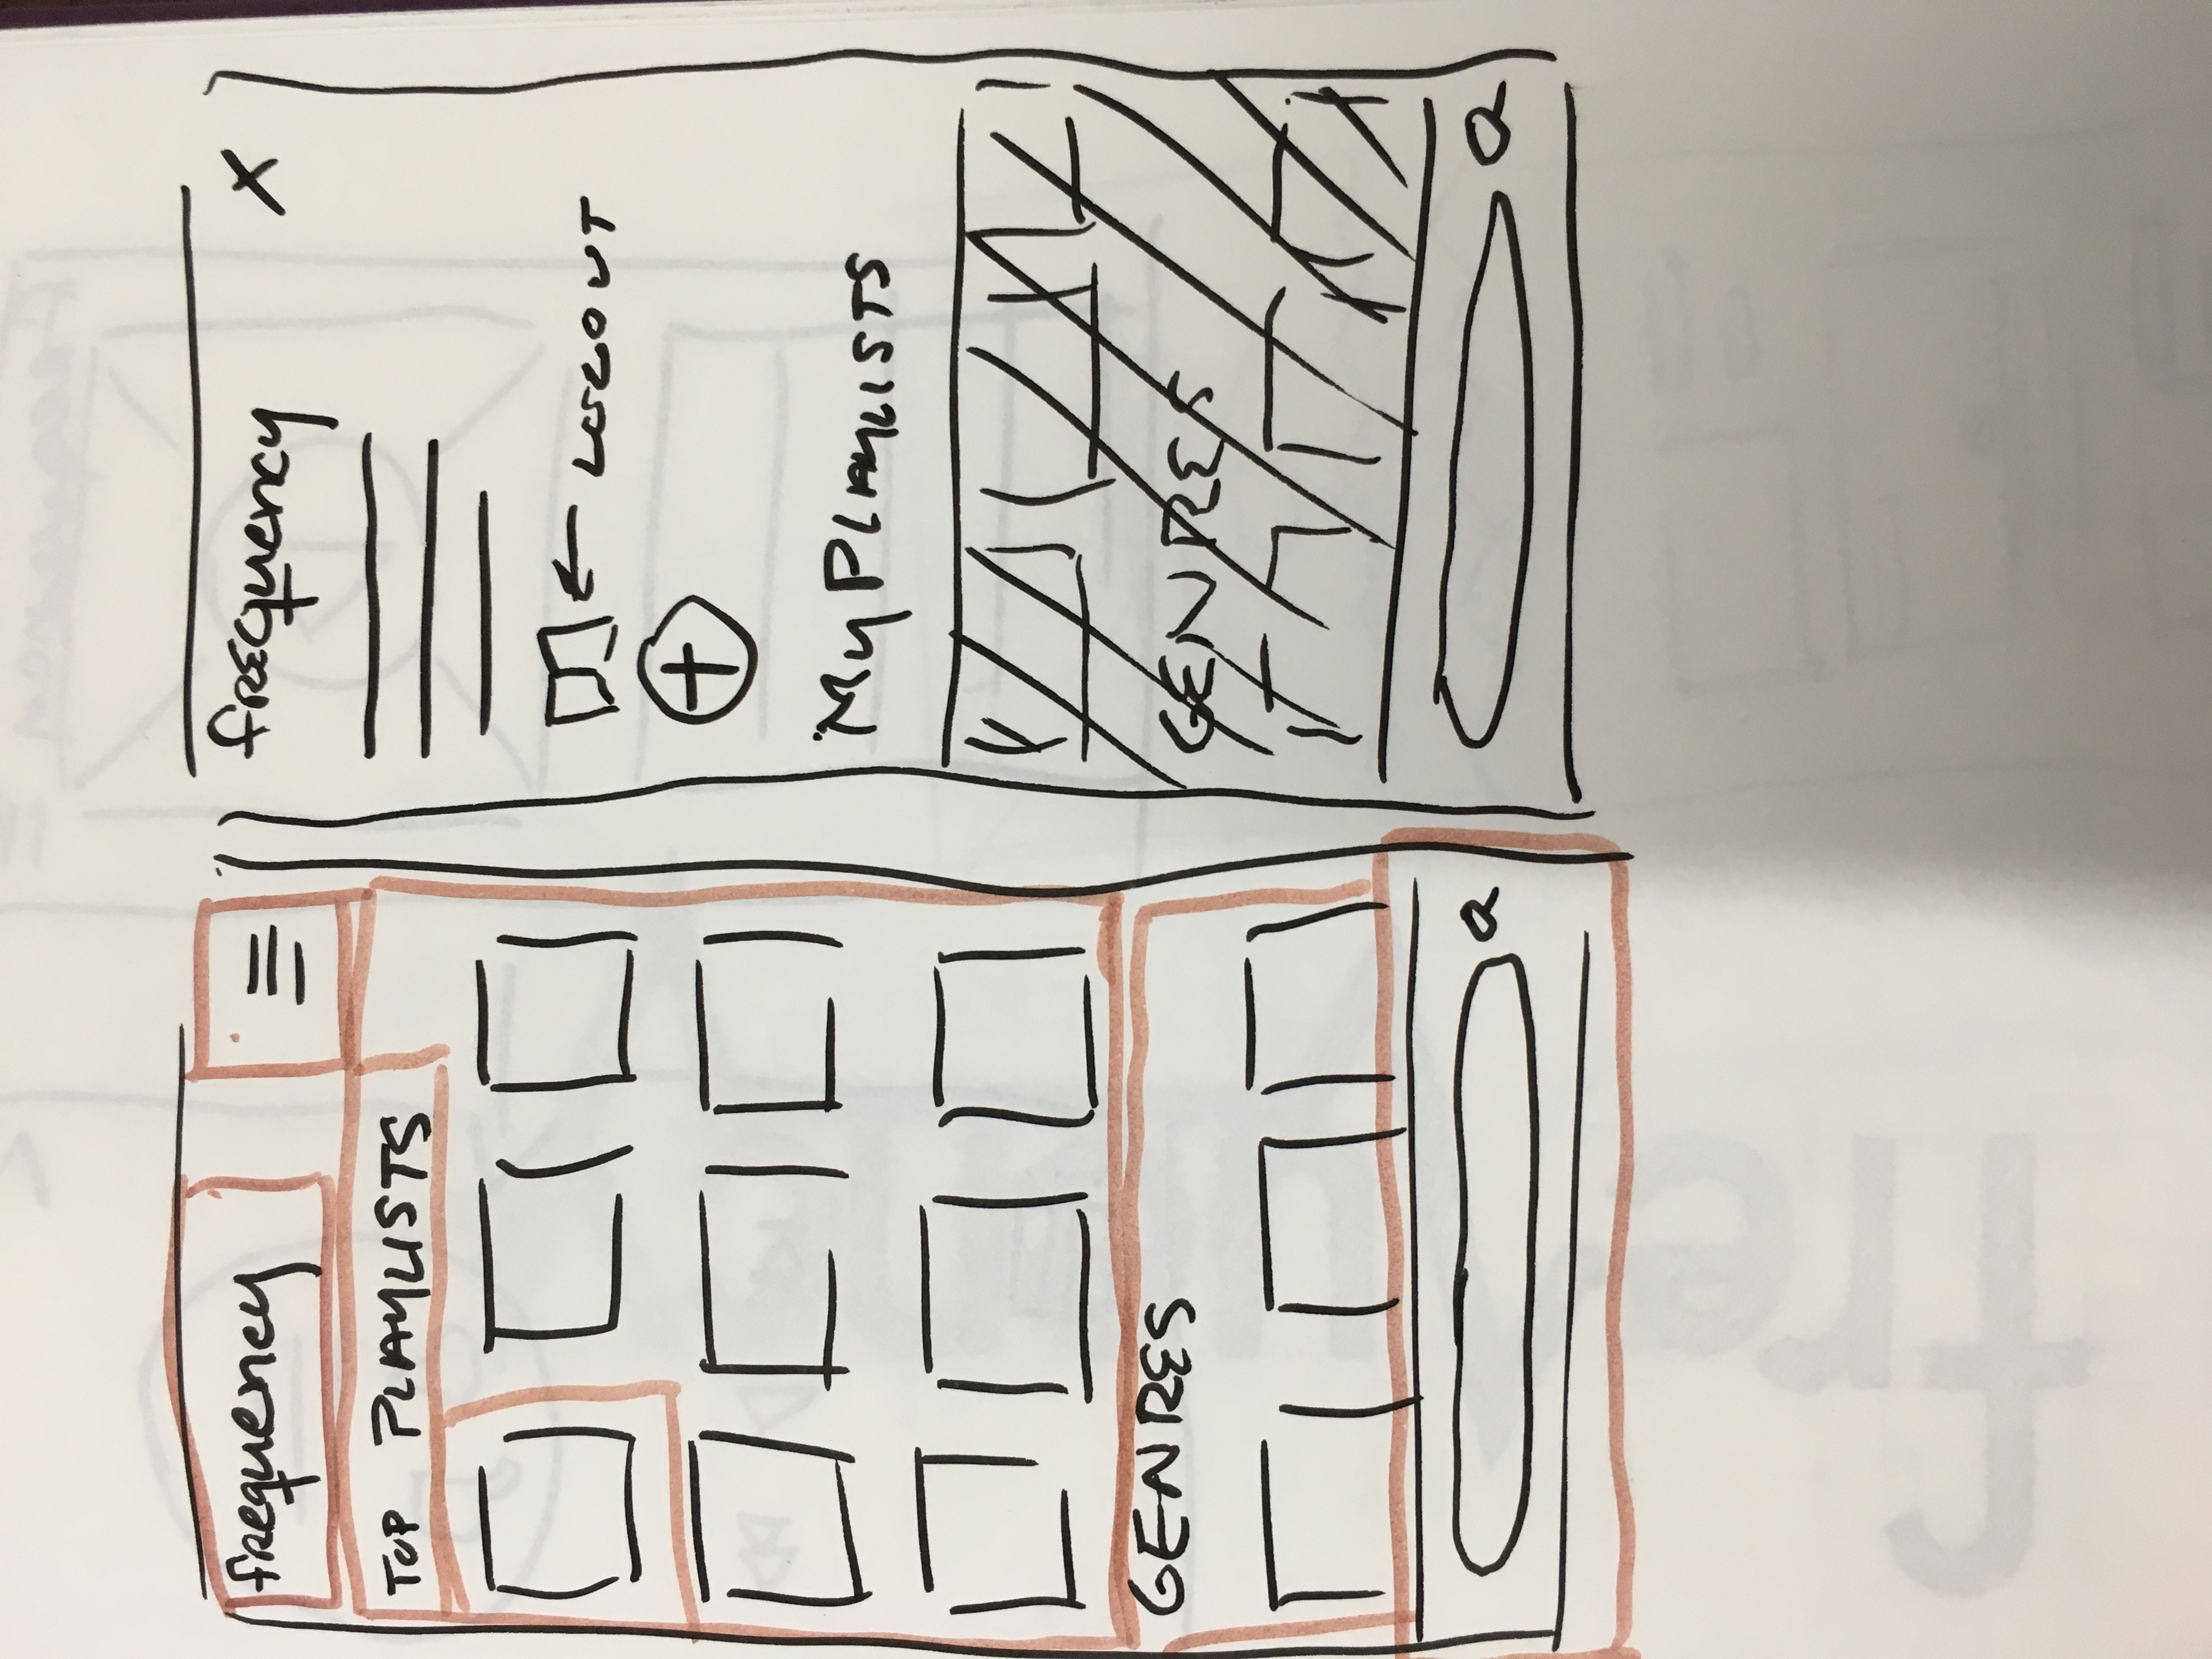 frequency
TOP PLAYLISTS
GENRES
frequency
X
LOGOUT
My PLAYLISTS
GENRES